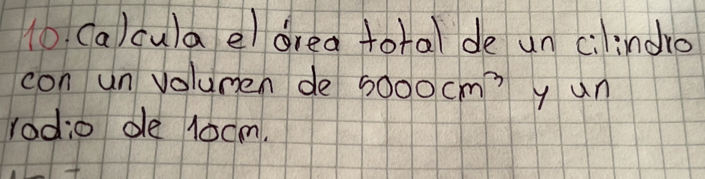 10. Calcula el área total de un cilindro
con un volumen de 5000cm³ y un
radio de 10cm.